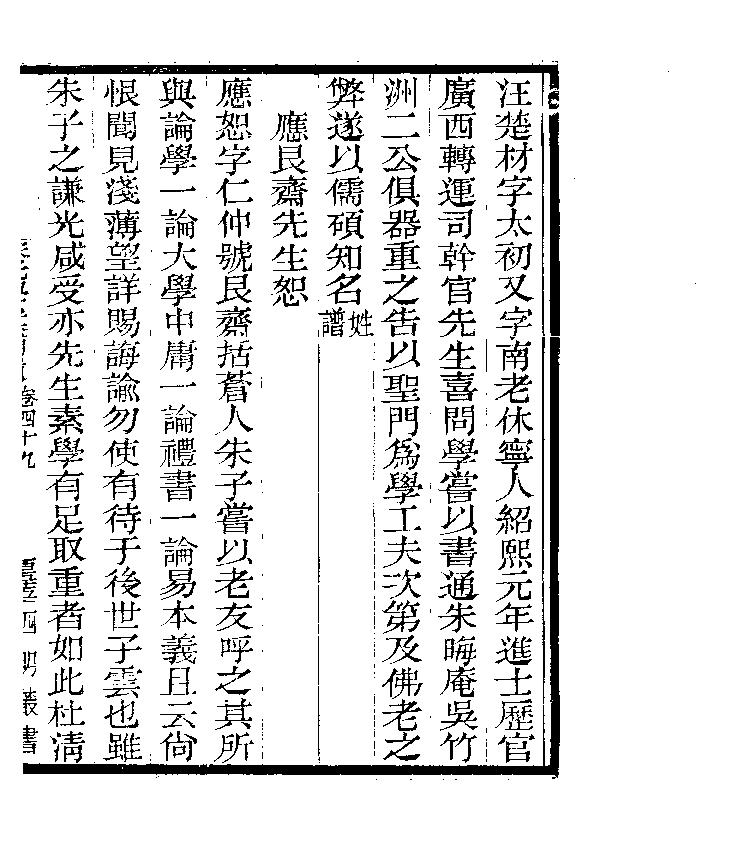 汪楚材字太初又字南老休寧人紹熙元年進士歷官
廣西轉運司幹官先生喜問學嘗以書通朱晦庵吳竹
洲二公俱器重之告以聖門為學工夫次第及佛老之
弊遂以儒碩知名姓譜
應艮齋先生恕
應恕字仁仲號艮齋括蒼人朱子嘗以老友呼之其所
與論學一論大學中庸一論禮書一論易本義且云尙
恨聞見淺薄望詳賜誨諭勿使有待于後世子雲也雖
朱子之謙光咸受亦先生素學有足取重者如此杜淸
卷四十九
四明叢書